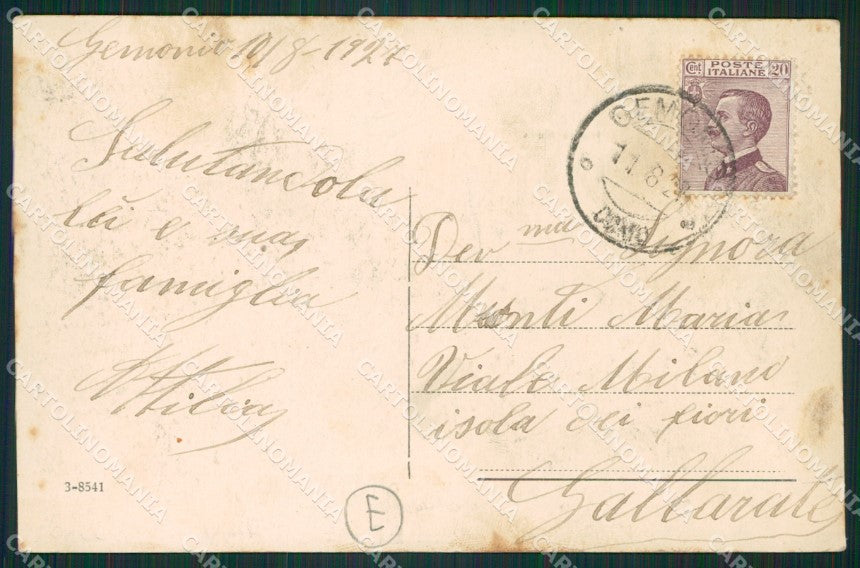 Gemonio 10/8-1927
Salutandola
lei e sua
famiglia
Attilia
3-8541
E
POSTE
ITALIANE
Cent 20
GEMONIO
11.8.2
COMO
Dev ma Signora
Monti Maria
Viale Milano
isola dei fiori
Gallarate
CARTOLINOMANIA